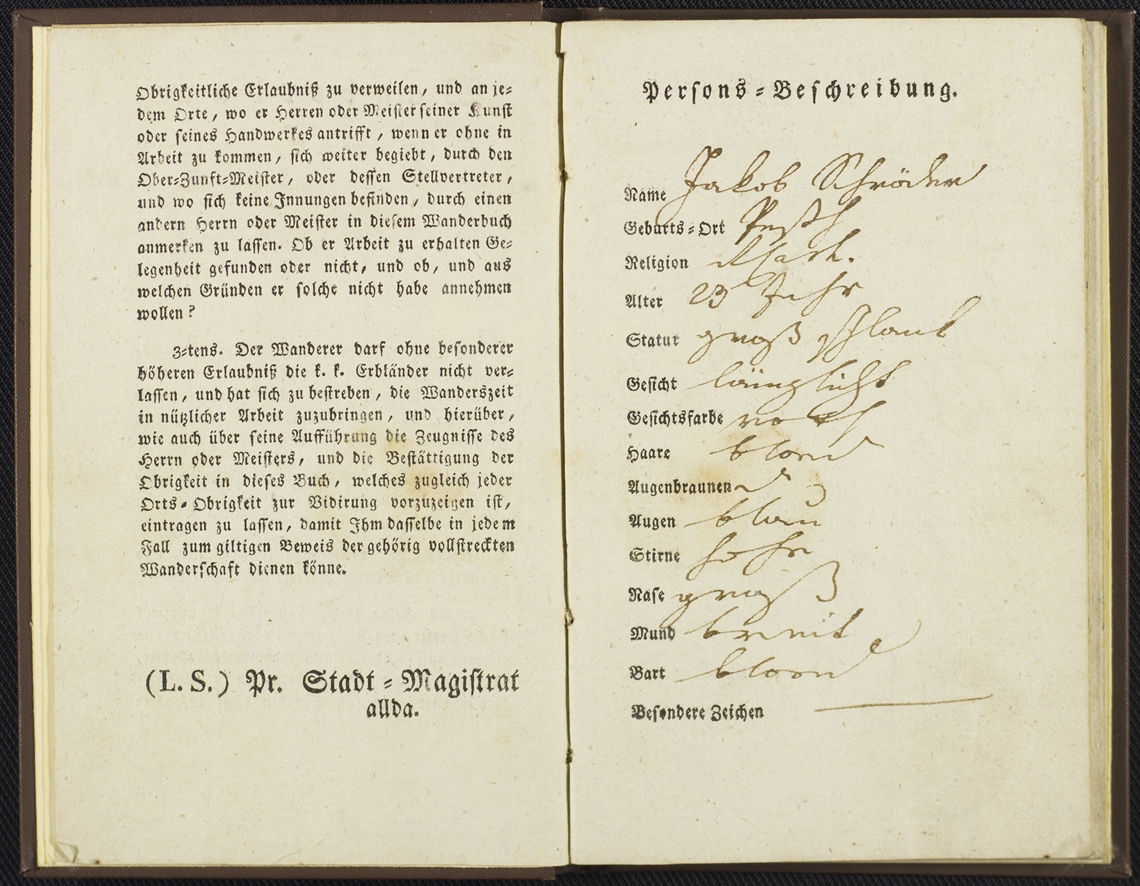 Obrigkeitliche Erlaubniß zu verweilen, und an je-
dem Orte, wo er Herren oder Meister seiner Kunst
oder seines Handwerkes antrifft, wenn er ohne in
Arbeit zu kommen, sich weiter begiebt, durch den
Ober-Zunft-Meister, oder dessen Stellvertreter,
und wo sich keine Innungen befinden, durch einen
andern Herrn oder Meister in diesem Wanderbuch
anmerken zu lassen. Ob er Arbeit zu erhalten Ge-
legenheit gefunden oder nicht, und ob, und aus
welchen Gründen er solche nicht habe annehmen
wollen?
3-tens. Der Wanderer darf ohne besonderer
höheren Erlaubniß die k. k. Erbländer nicht ver-
lassen, und hat sich zu bestreben, die Wanderszeit
in nützlicher Arbeit zuzubringen, und hierüber,
wie auch über seine Aufführung die Zeugnisse des
Herrn oder Meisters, und die Bestättigung der
Obrigkeit in dieses Buch, welches zugleich jeder
Orts-Obrigkeit zur Vidirung vorzuzeigen ist,
eintragen zu lassen, damit Ihm dasselbe in jedem
Fall zum giltigen Beweis der gehörig vollstreckten
Wanderschaft dienen könne.
(L. S.) Pr. Stadt-Magistrat
allda.
Persons-Beschreibung.
Name Jakob Schröder
Geburts-Ort Pesth
Religion
Alter 23 Jahr
Statur groß schlank
Gesicht länglicht
Gesichtsfarbe roth
Haare blond
Augenbraunen
Augen blau
Stirne hohe
Nase groß
Mund breit
Bart blond
Besondere Zeichen —